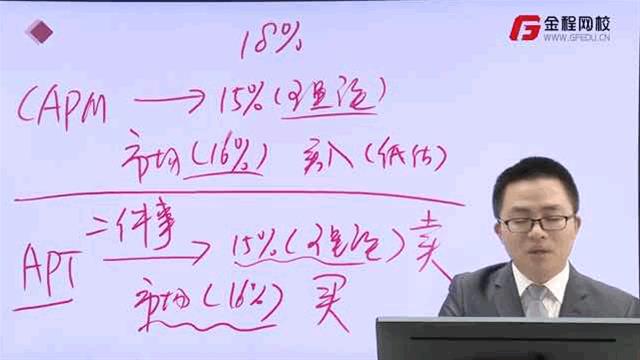 金程网校
WWW.GFEDU.CN
18%
CAPM → 15%(理论)
市场(16%) 买入(低估)
APT 二件事 → 15%(理论) 卖
市场(16%) 买